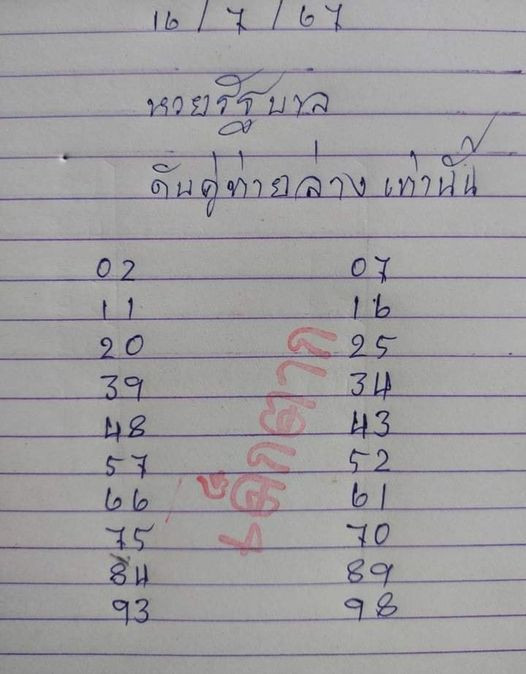 16 / 7 / 67
หวยรัฐบาล
ดับคู่ท้ายล่าง เท่านั้น
02 07
11 16
20 25
39 34
48 43
57 52
66 61
75 70
84 89
93 98